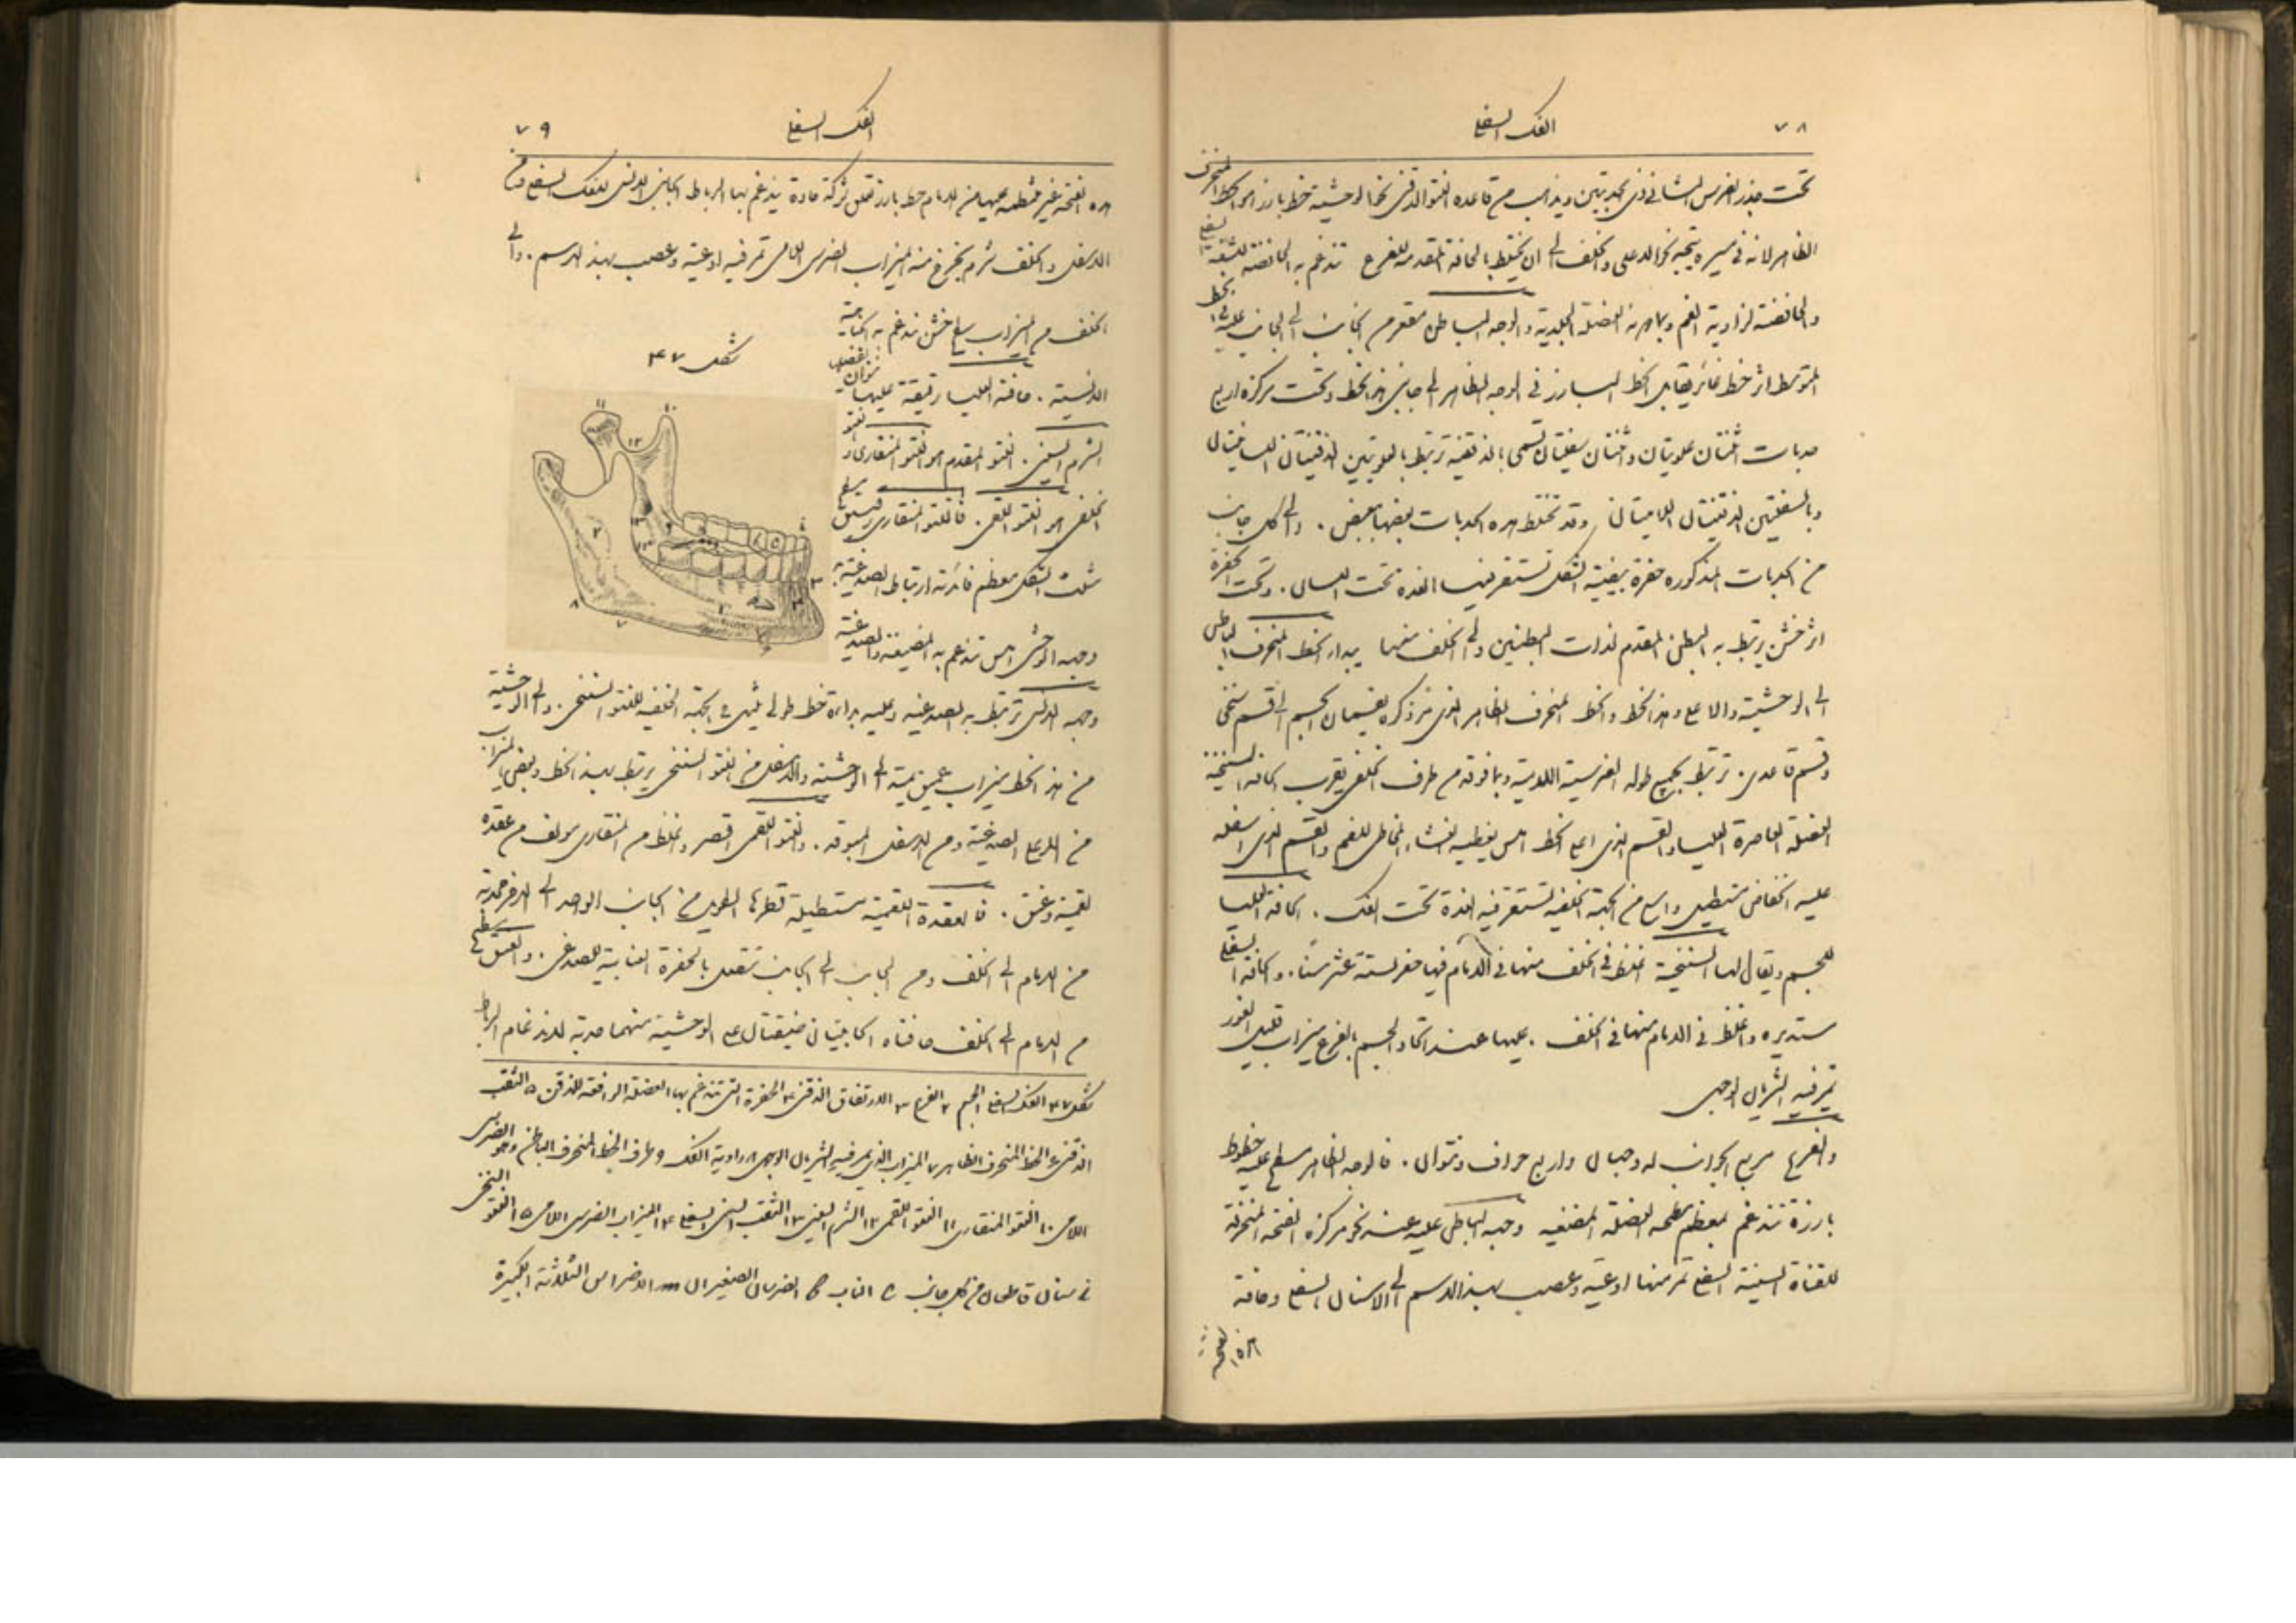 ٧٨
الفك السفلي
تحت جذر الضرس الثاني ذي الحدبتين ويذهب من قاعدة النتو الذقني نحو الوحشية خط بارز هو الخط المنحرف
الظاهر لانه في سيره يتجه نحو الاعلى والخلف الى ان يختلط بالحافة المقدمة للفرع تندغم به الخافضة للشفة السفلى
والخافضة لزاوية الفم وبقربه العضلة الجلدية والوجه الباطن مقعر من الجانب الى الجانب عليه في الخط
المتوسط اثر خط غائر يقابل الخط البارز في الوجه الظاهر الى جانبي هذا الخط وتحت مركزه اربع
حدبات ثنتان علويتان وثنتان سفليتان تسمى بالذقنية ترتبط بالعلويتين الذقنيتان اللسانيتان
وبالسفليتين الذقنيتان اللاميتان وقد تختلط هذه الحدبات بعضها ببعض . والى كل جانب
من الحدبات المذكورة حفرة بيضية الشكل تستقر فيها الغدة تحت اللسان . وتحت الحفرة
اثر خشن يرتبط به البطن المقدم لذات البطنين والى الخلف منها يبدا الخط المنحرف الباطن
الى الوحشية والاعلى وهذا الخط والخط المنحرف الظاهر الذي مر ذكره يقسمان الجسم الى قسم سنخي
وقسم قاعدي . ترتبط بجميع طوله الضرسية اللامية وبما فوقه من طرف الخلفي بقرب الحافة السنخية
العضلة العاصرة العليا والقسم الذي اعلى الخط املس يغطيه الغشاء المخاطي للفم والقسم الذي اسفله
عليه انخفاض مستطيل واسع من الجهة الخلفية تستقر فيه الغدة تحت الفك . الحافة العليا
للجسم ويقال لها السنخية اغلظ في الخلف منها في الامام فيها حفر لستة عشر سنا . والحافة السفلى
مستديرة واغلظ في الامام منها في الخلف . عليها عند اتحاد الجسم بالفرع ميزاب قليل الغور
تمر فيه الشريان الوجهي
والفرع مربع الجوانب له وجهان واربع حواف ونتوان . فالوجه الظاهر مسطح عليه خطوط
بارزة تندغم بمعظم سطحه العضلة المضغية وجهه الباطن عليه عند نحو مركزه الفتحة المنحرفة
للقناة السنية السفلى تمر منها اوعية وعصب بهذا الاسم الى الاسنان السفلى وحافة
هذه الفتحة
الفك السفلي
٧٩
هذه الفتحة غير منتظمة عليها من الامام خط بارز تعلوه شوكة حادة يندغم بها الرباط الجانبي الانسي للفك السفلي ومن
الاسفل والخلف ثرم يخرج منه الميزاب الضرسي اللامي تمر فيه اوعية وعصب بهذا الاسم . والى
الخلف من الميزاب سطح خشن تندغم به الجناحية
الانسية . حافته العليا رقيقة عليها نتوان يفصلهما
الثرم السيني . النتو المقدم هو النتو المنقاري والنتو
الخلفي هو النتو اللقمي . فالنتو المنقاري رقيق مسطح
مثلث الشكل معظم فائدته ارتباط الصدغية به
وجهه الوحشي املس تندغم به المضغية والصدغية
وجهه الانسي ترتبط به الصدغية وعليه بداءة خط طولي ينتهي في الجهة الخلفية للنتو السنخي . والى الوحشية
من هذا الخط ميزاب عميق يمتد الى الوحشية والاسفل من النتو السنخي يرتبط بهذا الخط وبعض الميزاب
من الاعلى الصدغية ومن الاسفل المبوقة . والنتو اللقمي اقصر واغلظ من المنقاري مؤلف من عقدة
لقمية وعنق . فالعقدة اللقمية مستطيلة قطرها الطويل من الجانب الواحد الى الاخر محدبة
من الامام الى الخلف ومن الجانب الى الجانب تتصل بالحفرة العنابية للصدغي . والعنق مسطح
من الامام الى الخلف حافتاه الجانبيتان ضيقتان على الوحشية منهما حدبة لاندغام الرباط
شكل ٤٧
شكل ٤٧ الفك السفلي ١ الجسم ٢ الفرع ٣ الارتفاق الذقني ٤ الحفرة التي تندغم بها العضلة الرافعة للذقن ٥ الثقب
الذقني ٦ الخط المنحرف الظاهر ٧ الميزاب الذي يمر فيه الشريان الوجهي ٨ زاوية الفك ٩ طرف الخط المنحرف الباطن وهو الضرسي
اللامي ١٠ النتو المنقاري ١١ النتو اللقمي ١٢ الثرم السيني ١٣ الثقب السني السفلي ١٤ الميزاب الضرسي اللامي ١٥ النتو السنخي
سنان قاطعان من كل جانب c الناب b الضرسان الصغيران m الاضراس الثلاثة الكبيرة